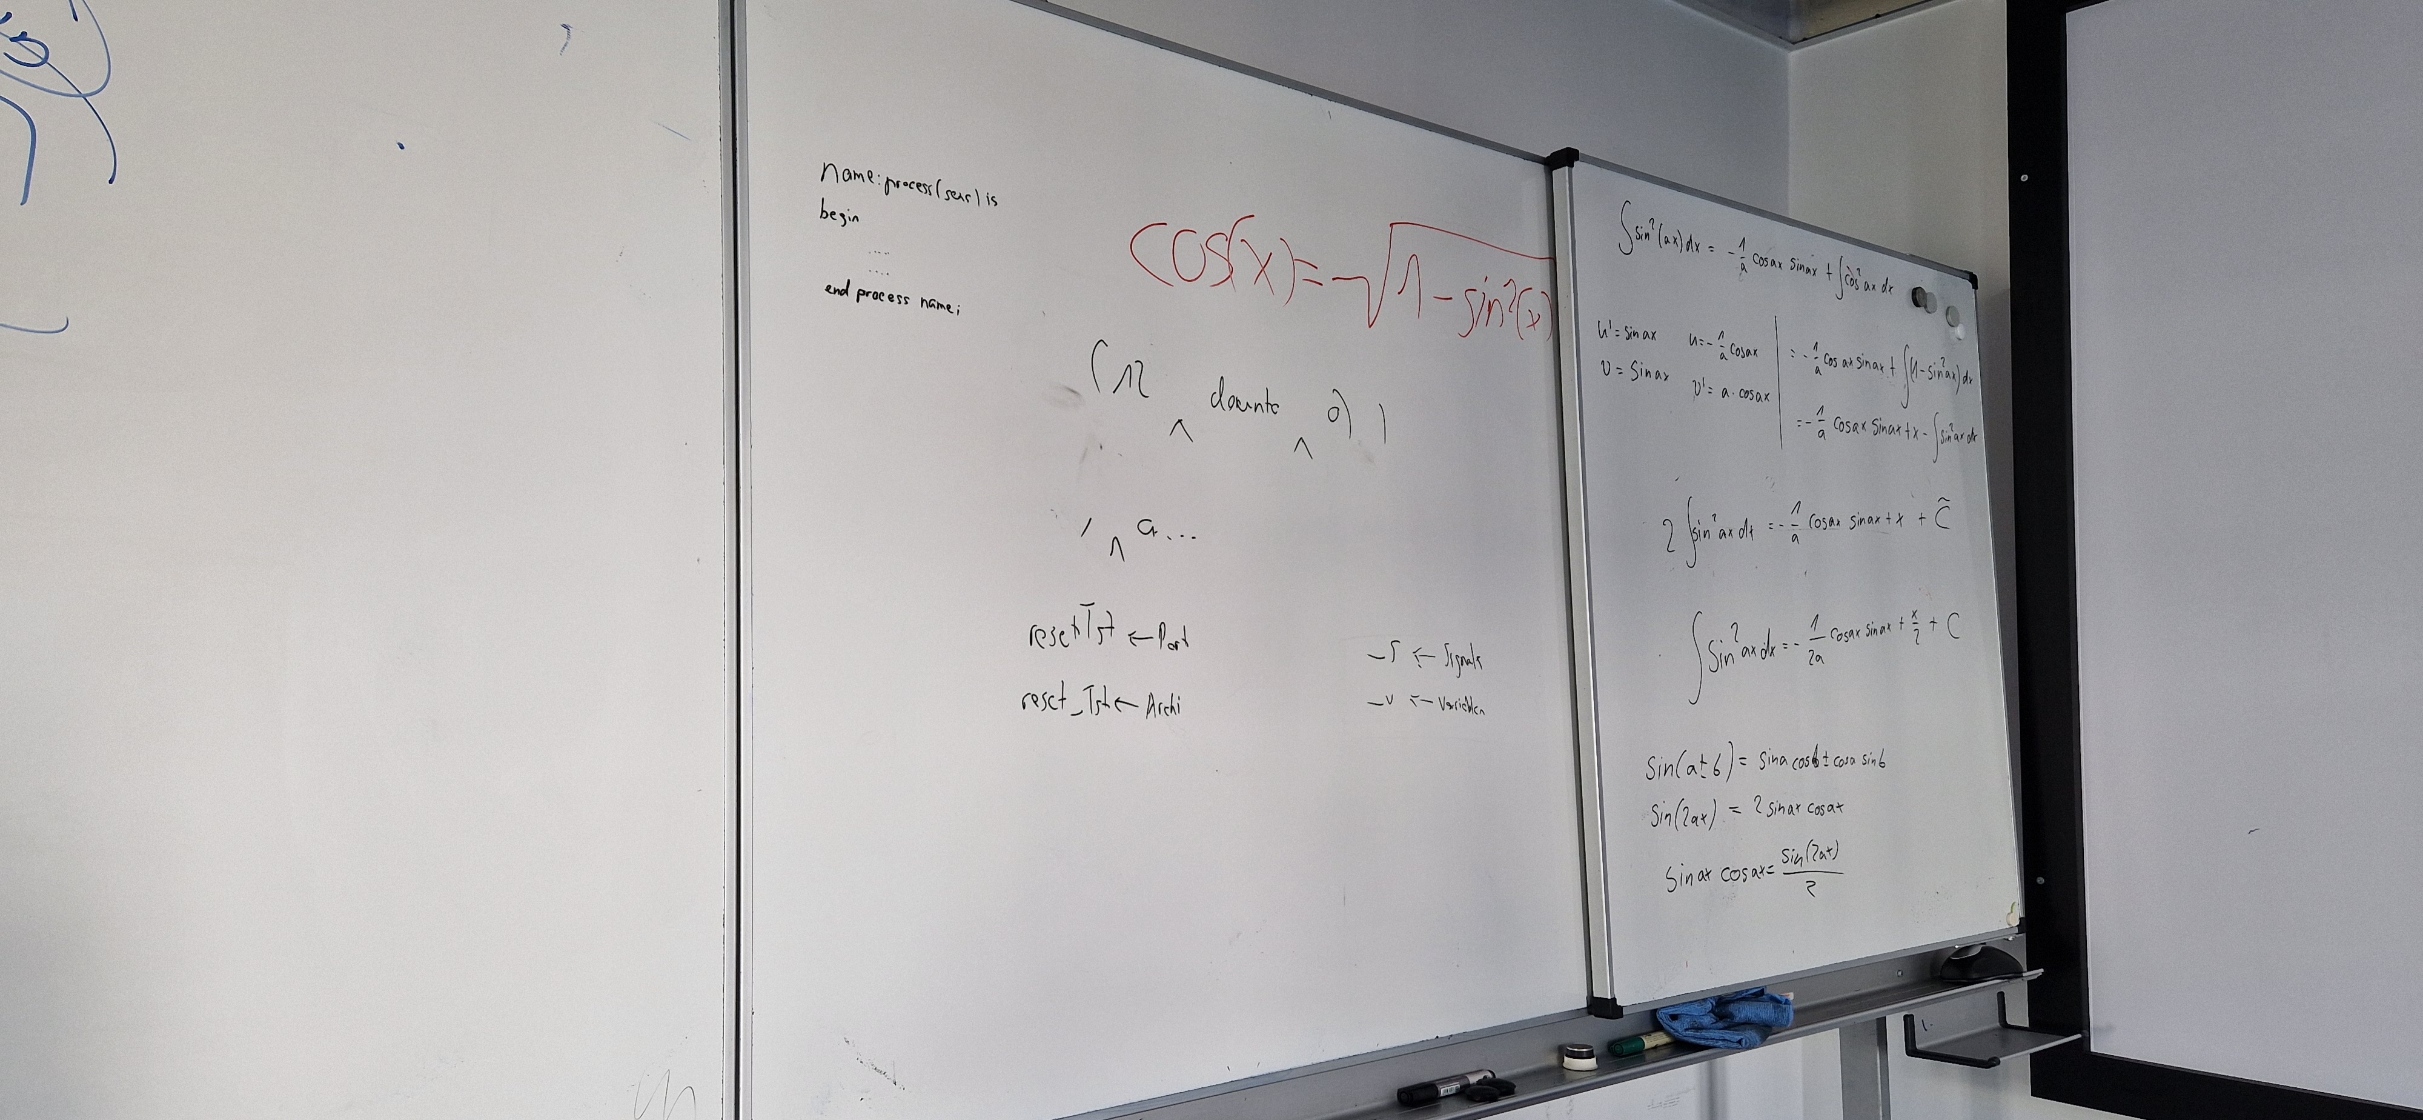 name: process(sens) is
begin
....
....
end process name;
cos(x) = -√1 - sin²(x)
(12 ^ downto ^ 0) )
, ^ a...
resetTst ← Port
reset_Tst ← Archi
_s ← Signals
_v ← Variablen
∫sin²(ax)dx = -1/a cosax sinax + ∫cos²ax dx
u' = sinax u = -1/a cosax
v = sinax v' = a · cosax
= -1/a cosax sinax + ∫(1-sin²ax)dx
= -1/a cosax sinax + x - ∫sin²ax dx
2∫sin²ax dx = -1/a cosax sinax + x + C̃
∫sin²ax dx = -1/2a cosax sinax + x/2 + C
sin(a±b) = sina cosb ± cosa sinb
sin(2ax) = 2 sinax cosax
sinax cosax = sin(2ax)/2